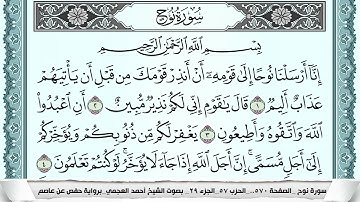 سُورَةُ نُوحٍ
بِسْمِ اللَّهِ الرَّحْمَٰنِ الرَّحِيمِ
إِنَّا أَرْسَلْنَا نُوحًا إِلَىٰ قَوْمِهِۦٓ أَنْ أَنذِرْ قَوْمَكَ مِن قَبْلِ أَن يَأْتِيَهُمْ
عَذَابٌ أَلِيمٌ ١ قَالَ يَٰقَوْمِ إِنِّي لَكُمْ نَذِيرٌ مُّبِينٌ ٢ أَنِ ٱعْبُدُواْ
ٱللَّهَ وَٱتَّقُوهُ وَأَطِيعُونِ ٣ يَغْفِرْ لَكُم مِّن ذُنُوبِكُمْ وَيُؤَخِّرْكُمْ
إِلَىٰٓ أَجَلٍ مُّسَمًّى إِنَّ أَجَلَ ٱللَّهِ إِذَا جَآءَ لَا يُؤَخَّرُ لَوْ كُنتُمْ تَعْلَمُونَ ٤
سورة نوح _ الصفحة ٥٧٠ _ الحزب ٥٧ _ الجزء ٢٩ _ بصوت الشيخ أحمد العجمي _ برواية حفص عن عاصم